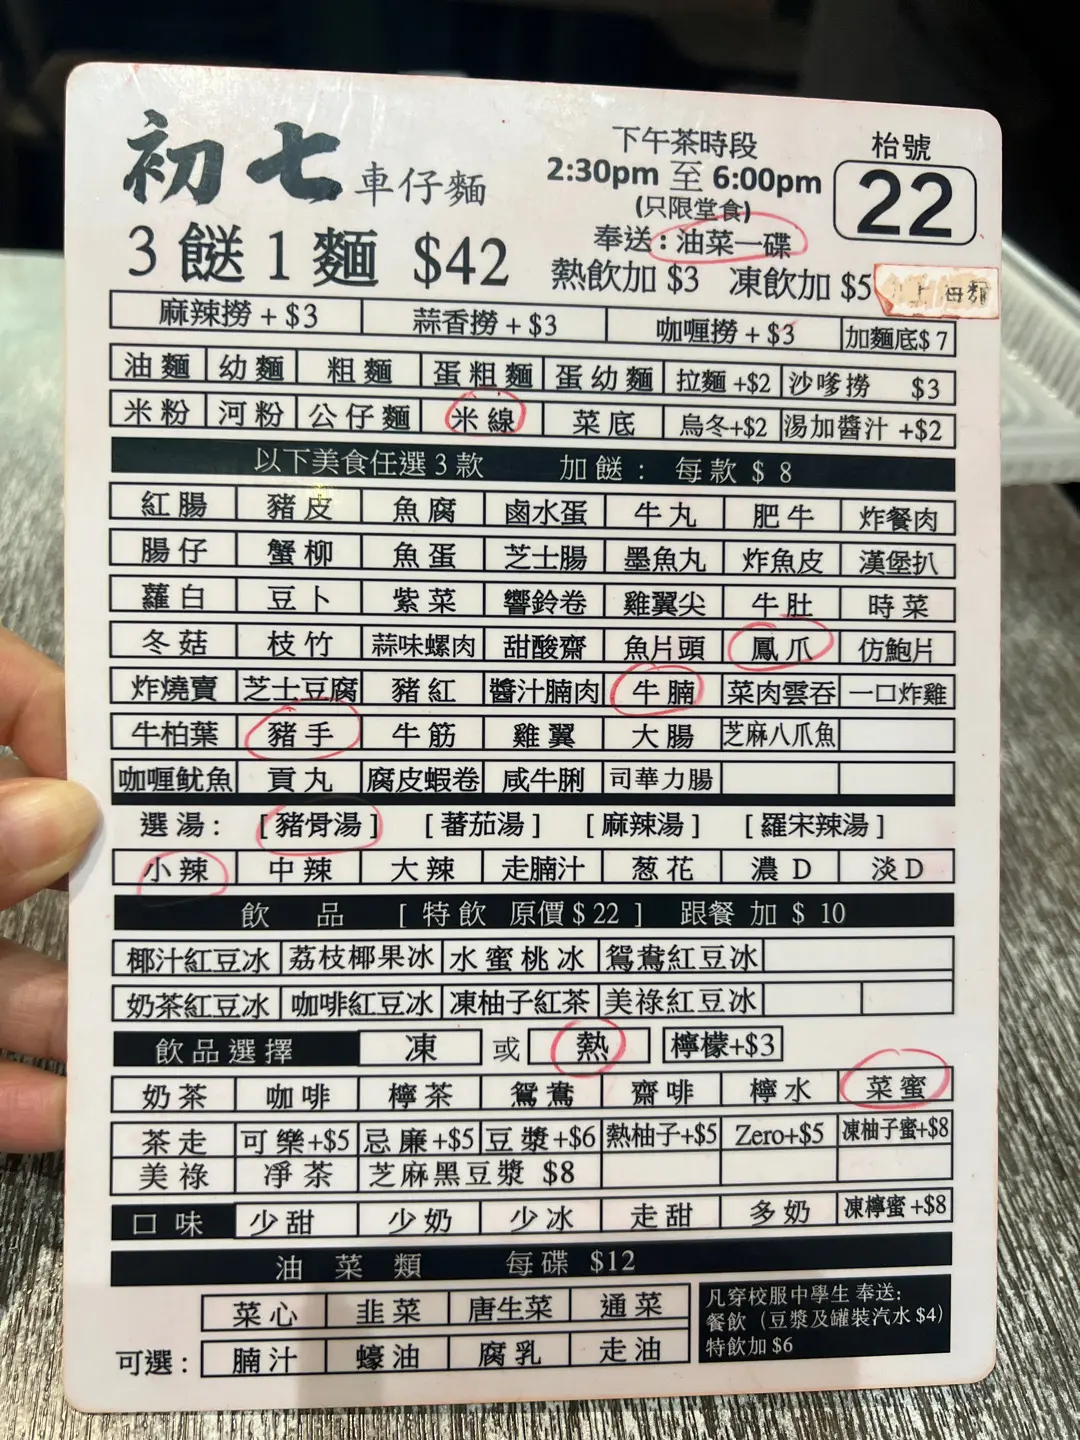 初七 車仔麵
下午茶時段
2:30pm 至 6:00pm
(只限堂食)
奉送：油菜一碟
枱號
22
3 餸 1 麵 $42
熱飲加 $3 凍飲加 $5
麻辣撈 + $3 蒜香撈 + $3 咖喱撈 + $3 加麵底$ 7
油麵 幼麵 粗麵 蛋粗麵 蛋幼麵 拉麵 +$2 沙嗲撈 $3
米粉 河粉 公仔麵 米線 菜底 烏冬+$2 湯加醬汁 +$2
以下美食任選 3 款 加餸： 每款 $ 8
紅腸 豬皮 魚腐 鹵水蛋 牛丸 肥牛 炸餐肉
腸仔 蟹柳 魚蛋 芝士腸 墨魚丸 炸魚皮 漢堡扒
蘿白 豆卜 紫菜 響鈴卷 雞翼尖 牛肚 時菜
冬菇 枝竹 蒜味螺肉 甜酸齋 魚片頭 鳳爪 仿鮑片
炸燒賣 芝士豆腐 豬紅 醬汁腩肉 牛腩 菜肉雲吞 一口炸雞
牛柏葉 豬手 牛筋 雞翼 大腸 芝麻八爪魚
咖喱魷魚 貢丸 腐皮蝦卷 咸牛脷 司華力腸
選湯： [ 豬骨湯 ] [ 蕃茄湯 ] [ 麻辣湯 ] [ 羅宋辣湯 ]
小辣 中辣 大辣 走腩汁 葱花 濃 D 淡 D
飲品 [ 特飲 原價 $ 22 ] 跟餐 加 $ 10
椰汁紅豆冰 荔枝椰果冰 水蜜桃冰 鴛鴦紅豆冰
奶茶紅豆冰 咖啡紅豆冰 凍柚子紅茶 美祿紅豆冰
飲品選擇 凍 或 熱 檸檬+$3
奶茶 咖啡 檸茶 鴛鴦 齋啡 檸水 菜蜜
茶走 可樂+$5 忌廉+$5 豆漿+$6 熱柚子+$5 Zero+$5 凍柚子蜜+$8
美祿 凈茶 芝麻黑豆漿 $8
口味 少甜 少奶 少冰 走甜 多奶 凍檸蜜 +$8
油菜類 每碟 $12
菜心 韭菜 唐生菜 通菜
可選： 腩汁 蠔油 腐乳 走油
凡穿校服中學生 奉送：
餐飲（豆漿及罐裝汽水 $4）
特飲加 $6